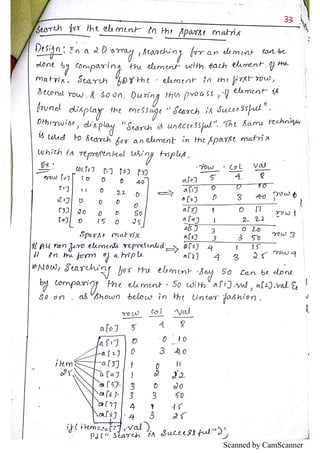 33
Search for the element in the sparse matrix
Design: In a 2D array, searching for an element can be
done by comparing the element with each element of the
matrix. Search for the element in the first row,
Second row & so on. During this process, if element is
found display the message "Search is Successful".
Otherwise, display "Search is unsuccessful". The same technique
is used to search for an element in the sparse matrix
which is represented using triples.
Ex:
col[0] [1] [2] [3]
row [0] 10 0 0 40
[1] 11 0 22 0
[2] 0 0 0 0
[3] 20 0 0 50
[4] 0 15 0 25
Sparse matrix
row col val
a[0] 5 4 8
a[1] 0 0 10
a[2] 0 3 40 row 0
a[3] 1 0 11
a[4] 1 2 22 row 1
a[5] 3 0 20
a[6] 3 3 50 row 3
a[7] 4 1 15
a[8] 4 3 25 row 4
// All non zero elements represented
// in the form of a triple
*Now, Searching for the element say 50 can be done
by comparing the element 50 with a[1].val, a[2].val &
so on, as shown below in the linear fashion.
row col val
a[0] 5 4 8
a[1] 0 0 10
a[2] 0 3 40
item a[3] 1 0 11
25 a[4] 1 2 22
a[5] 3 0 20
a[6] 3 3 50
a[7] 4 1 15
a[8] 4 3 25
if(item==a[i].val)
pf("Search is successful");
Scanned by CamScanner